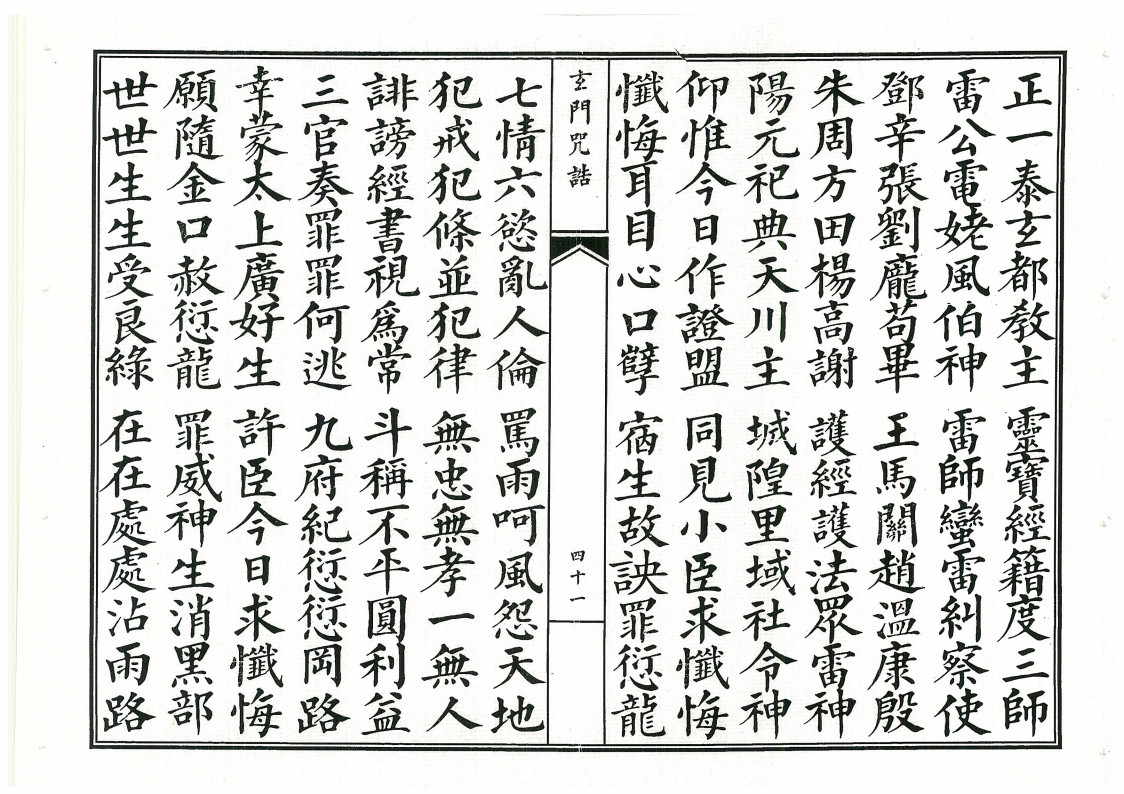 正一泰玄都教主　靈寶經籍度三師
雷公電姥風伯神　雷師蠻雷糾察使
鄧辛張劉龐苟畢　王馬關趙溫康殷
朱周方田楊高謝　護經護法眾雷神
陽元祀典天川主　城隍里域社令神
仰惟今日作證盟　同見小臣求懺悔
懺悔耳目心口孽　宿生故訣罪愆龍
玄門咒誥
四十一
七情六慾亂人倫　罵雨呵風怨天地
犯戒犯條並犯律　無忠無孝一無人
誹謗經書視為常　斗稱不平圓利益
三官奏罪罪何逃　九府紀愆愆罔路
幸蒙太上廣好生　許臣今日求懺悔
願隨金口赦愆龍　罪威神生消黑部
世世生生受良綠　在在處處沾雨路